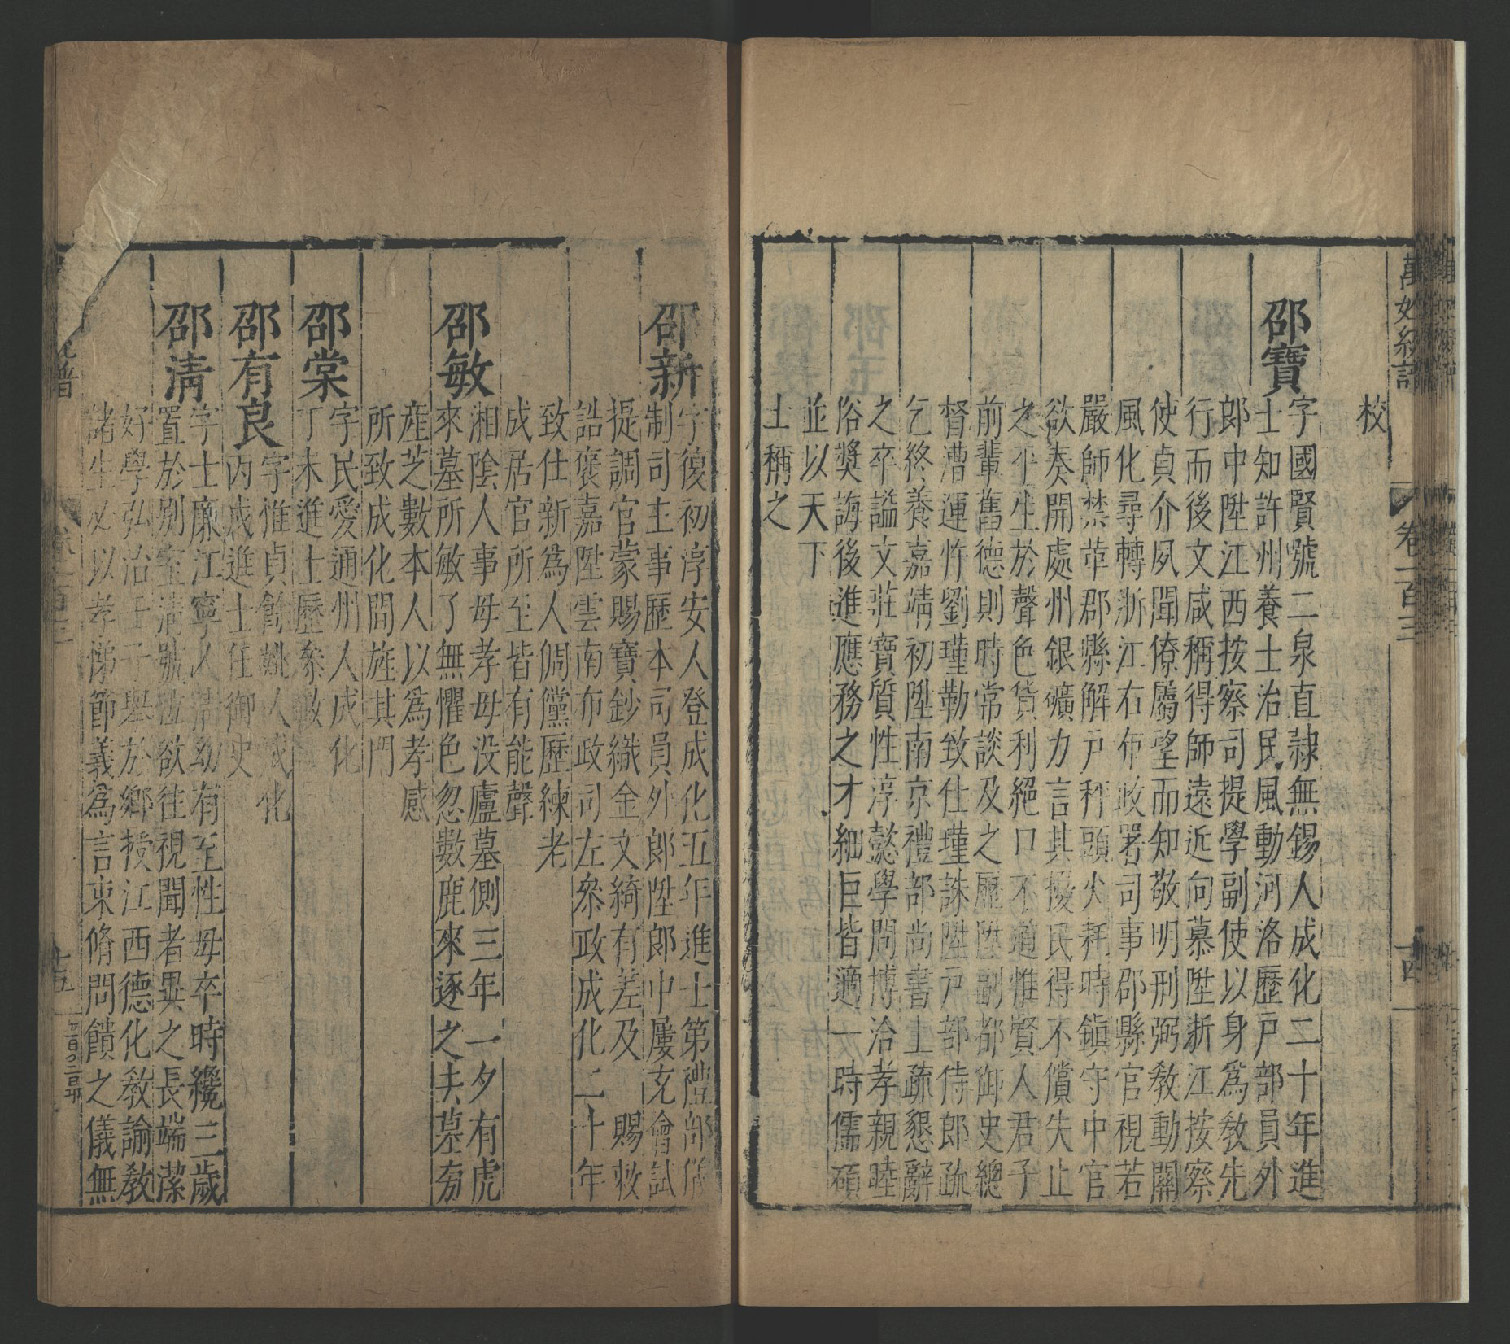 校
邵寶
字國賢號二泉直隷無錫人成化二十年進
士知許州養士治民風動河洛歷戸部員外
郎中陞江西按察司提學副使以身爲敎先
行而後文咸稱得師遠近向慕陞浙江按察
使貞介夙聞僚屬望而知敬明刑弼敎動關
風化尋轉浙江右布政署司事郡縣官視若
嚴師禁革郡縣解戸秤頭火耗時鎮守中官
欲奏開處州銀礦力言其擾民得不償失止
之平生於聲色貨利絕口不道惟賢人君子
前輩舊德則時常談及之歷陞副都御史總
督漕運忤劉瑾勒致仕瑾誅陞戸部侍郎疏
乞終養嘉靖初陞南京禮部尚書上疏懇辭
之卒謚文莊寶質性淳懿學問博洽孝親睦
俗奬誨後進應務之才細巨皆適一時儒碩
並以天下
士稱之
卷一百三
十四
邵新
字復初淳安人登成化五年進士第禮部儀
制司主事歷本司員外郎陞郎中屢充會試
提調官蒙賜寶鈔織金文綺有差及 賜敕
誥褒嘉陞雲南布政司左叅政成化二十年
致仕新爲人倜儻歷練老
成居官所至皆有能聲
邵敏
湘陰人事母孝母没廬墓側三年一夕有虎
來墓所敏了無懼色忽數鹿來逐之去墓旁
産芝數本人以爲孝感
所致成化間旌其門
邵棠
字民愛通州人成化
丁未進士歷叅議
邵有良
字惟貞餘姚人成化
丙戌進士任御史
邵清
字士廉江寧人清幼有至性母卒時纔三歲
置於别室清號泣欲往視聞者異之長端潔
好學弘治壬子舉於鄉授江西德化敎諭敎
諸生必以孝悌節義爲言束脩問饋之儀無
十五